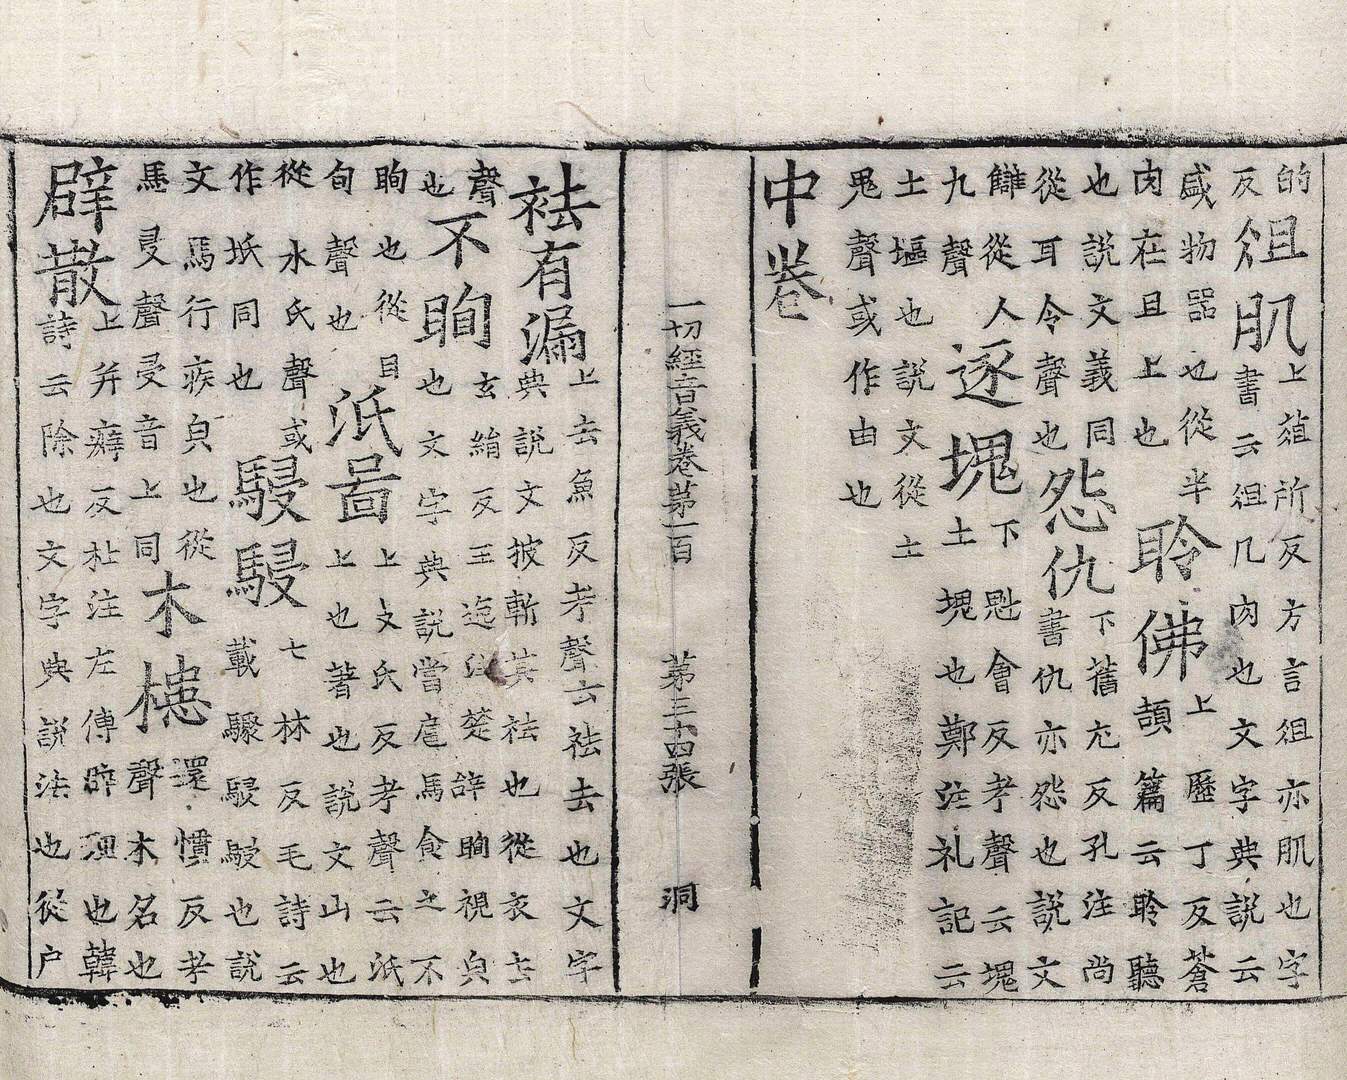 的
反
俎肌
上葅所反方言俎亦肌也字
書云俎几肉也文字典說云
盛物器也從半
肉在且上也
聆佛
上歷丁反蒼
頡篇云聆聽
也說文義同
從耳令聲也
怨仇
下舊尤反孔注尚
書仇亦怨也說文
讎從人
九聲
逐塊
下魁會反考聲云塊
土塊也鄭注礼記云
土堛也說文從土
鬼聲或作由也
中卷
一切經音義卷第一百 第三十四張 洞
祛有漏
上去魚反考聲云祛去也文字
典說文披斬其祛也從衣去
聲
也
不眴
玄絹反王逸注楚辞眴視皃
也文字典說當扈馬食之不
眴也從目
旬聲也
泜啚
上文氏反考聲云泜
上也著也說文山也
從水氏聲或
作坻同也
駸駸
七林反毛詩云
載驟駸駸也說
文馬行疾皃也從
馬𠬶聲𠬶音上同
木槵
還慣反考
聲木名也
辟散
上并癖反杜注左傳辟理也韓
詩云除也文字典說法也從户